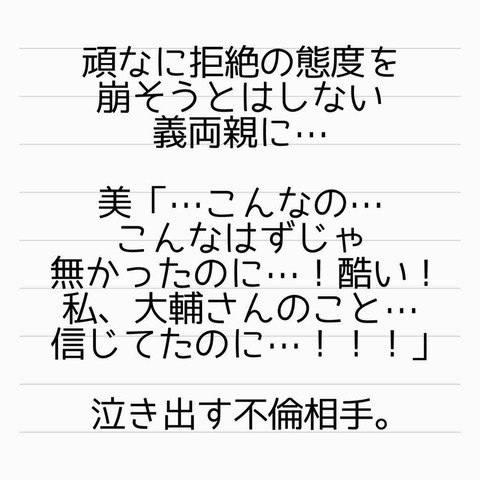 頑なに拒絶の態度を
崩そうとはしない
義両親に…
美「…こんなの…
こんなはずじゃ
無かったのに…！酷い！
私、大輔さんのこと…
信じてたのに…！！！」
泣き出す不倫相手。